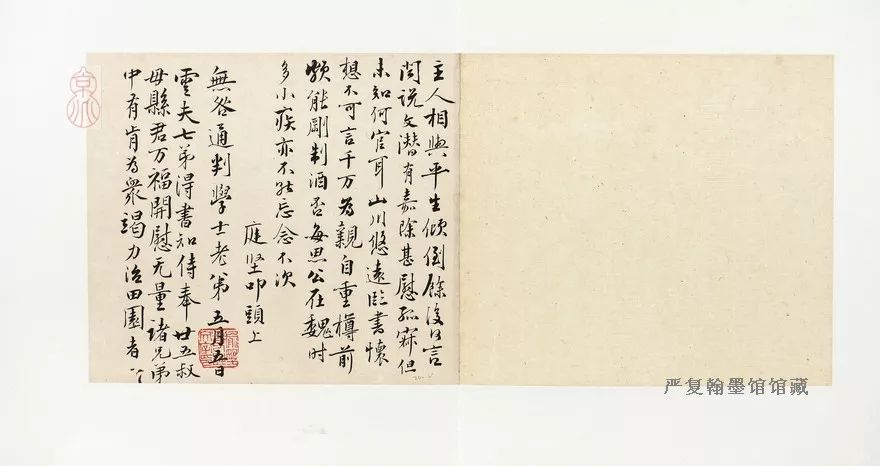 主人相與平生傾倒餘復何言
聞說文潛有嘉除甚慰孤寂但
未知何官耳山川悠遠臨書懷
想不可言千万為親自重樽前
頗能剛制酒否每思公在魏時
多小疾亦不能忘念不次
庭堅叩頭上
無咎通判學士老弟五月五日
雲夫七弟得書知侍奉廿五叔
母縣君万福開慰无量諸兄弟
中有肯為衆竭力治田園者
严复翰墨馆馆藏